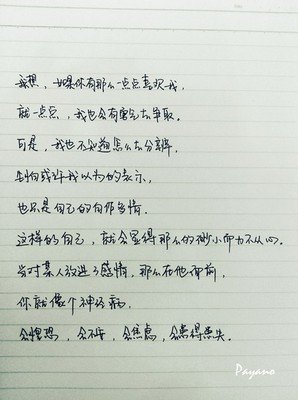 我想，如果你有那么一点点喜欢我，
就一点点，我也会有勇气去争取。
可是，我也不知道怎么去分辨，
也只是自己的自作多情。
这样的自己，就会显得那么的渺小而力不从心。
当对某人放进了感情，那么在他面前，
你就像个神经病。
会惶恐，会不安，会焦虑，会患得患失。
Payano